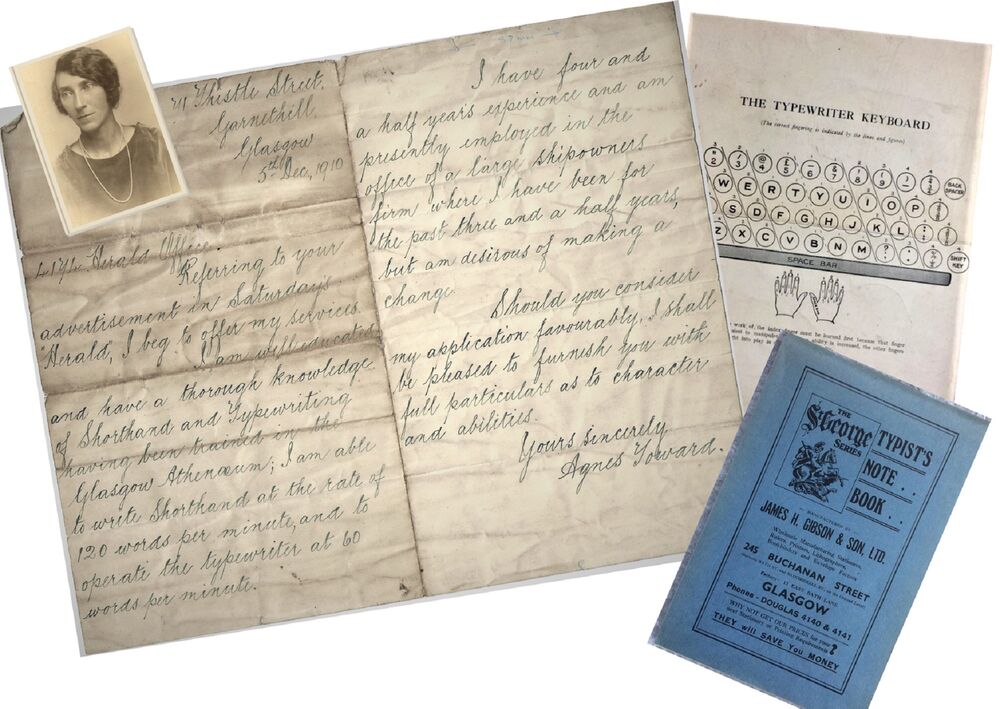 71 Thistle Street.
Garnethill,
Glasgow
5th Dec, 1910
L194 Herald Office.
Referring to your
advertisement in Saturday's
"Herald", I beg to offer my services.
I am well educated
and have a thorough knowledge
of Shorthand and Typewriting
having been trained in the
Glasgow Athenæum; I am able
to write Shorthand at the rate of
120 words per minute, and to
operate the typewriter at 60
words per minute.
I have four and
a half years experience and am
presently employed in the
office of a large shipowners
firm where I have been for
the past three and a half years,
but am desirous of making a
change.
Should you consider
my application favourably, I shall
be pleased to furnish you with
full particulars as to character
and abilities.
Yours sincerely
Agnes Toward.
THE TYPEWRITER KEYBOARD
(The correct fingering is indicated by the lines and figures)
2 3 4 5 6 7 8 9 BACK SPACER
W E R T Y U I O P
S D F G H J K L
Z X C V B N M SHIFT KEY
SPACE BAR
work of the index finger must be learned first because that finger
ability is increased, the other fingers
THE
St. George
SERIES
TYPIST'S
NOTE . .
BOOK . .
MANUFACTURED BY
JAMES H. GIBSON & SON. LTD.
Wholesale Manufacturing Stationers,
Rulers, Printers, Lithographers,
Bookbinders and Envelope Factors
245 BUCHANAN STREET
GLASGOW
Phones - DOUGLAS 4140 & 4141
WHY NOT GET OUR PRICES for your
next Stationery or Printing Requirements ?
THEY will SAVE YOU MONEY